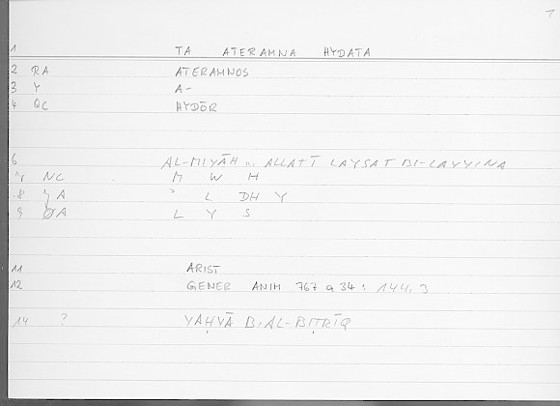 1
1 TA ATERAMNA HYDATA
2 RA ATERAMNOS
3 Y A-
4 QC HYDŌR
6 AL-MIYĀH ... ALLATĪ LAYSAT BI-LAYYINA
7 NC M W H
8 A ʾ L DH Y
9 ØA L Y S
11 ARIST
12 GENER ANIM 767 a 34 : 144.3
14 ? YAḤYĀ B. AL-BIṬRĪQ